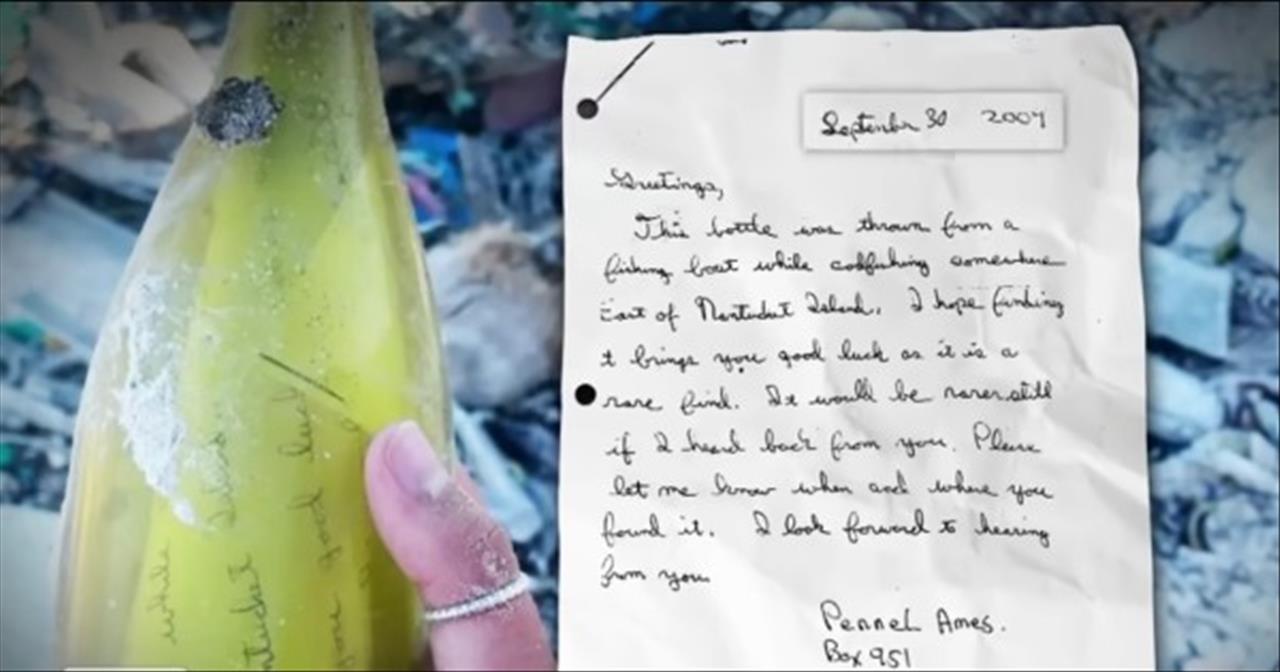 while
Island
good luck
ntucket
you good
September 30 2004
Greetings,
This bottle was thrown from a
fishing boat while codfishing somewhere
East of Nantucket Island. I hope finding
it brings you good luck as it is a
rare find. It would be rarer still
if I heard back from you. Please
let me know when and where you
found it. I look forward to hearing
from you
Pennel Ames.
Box 951